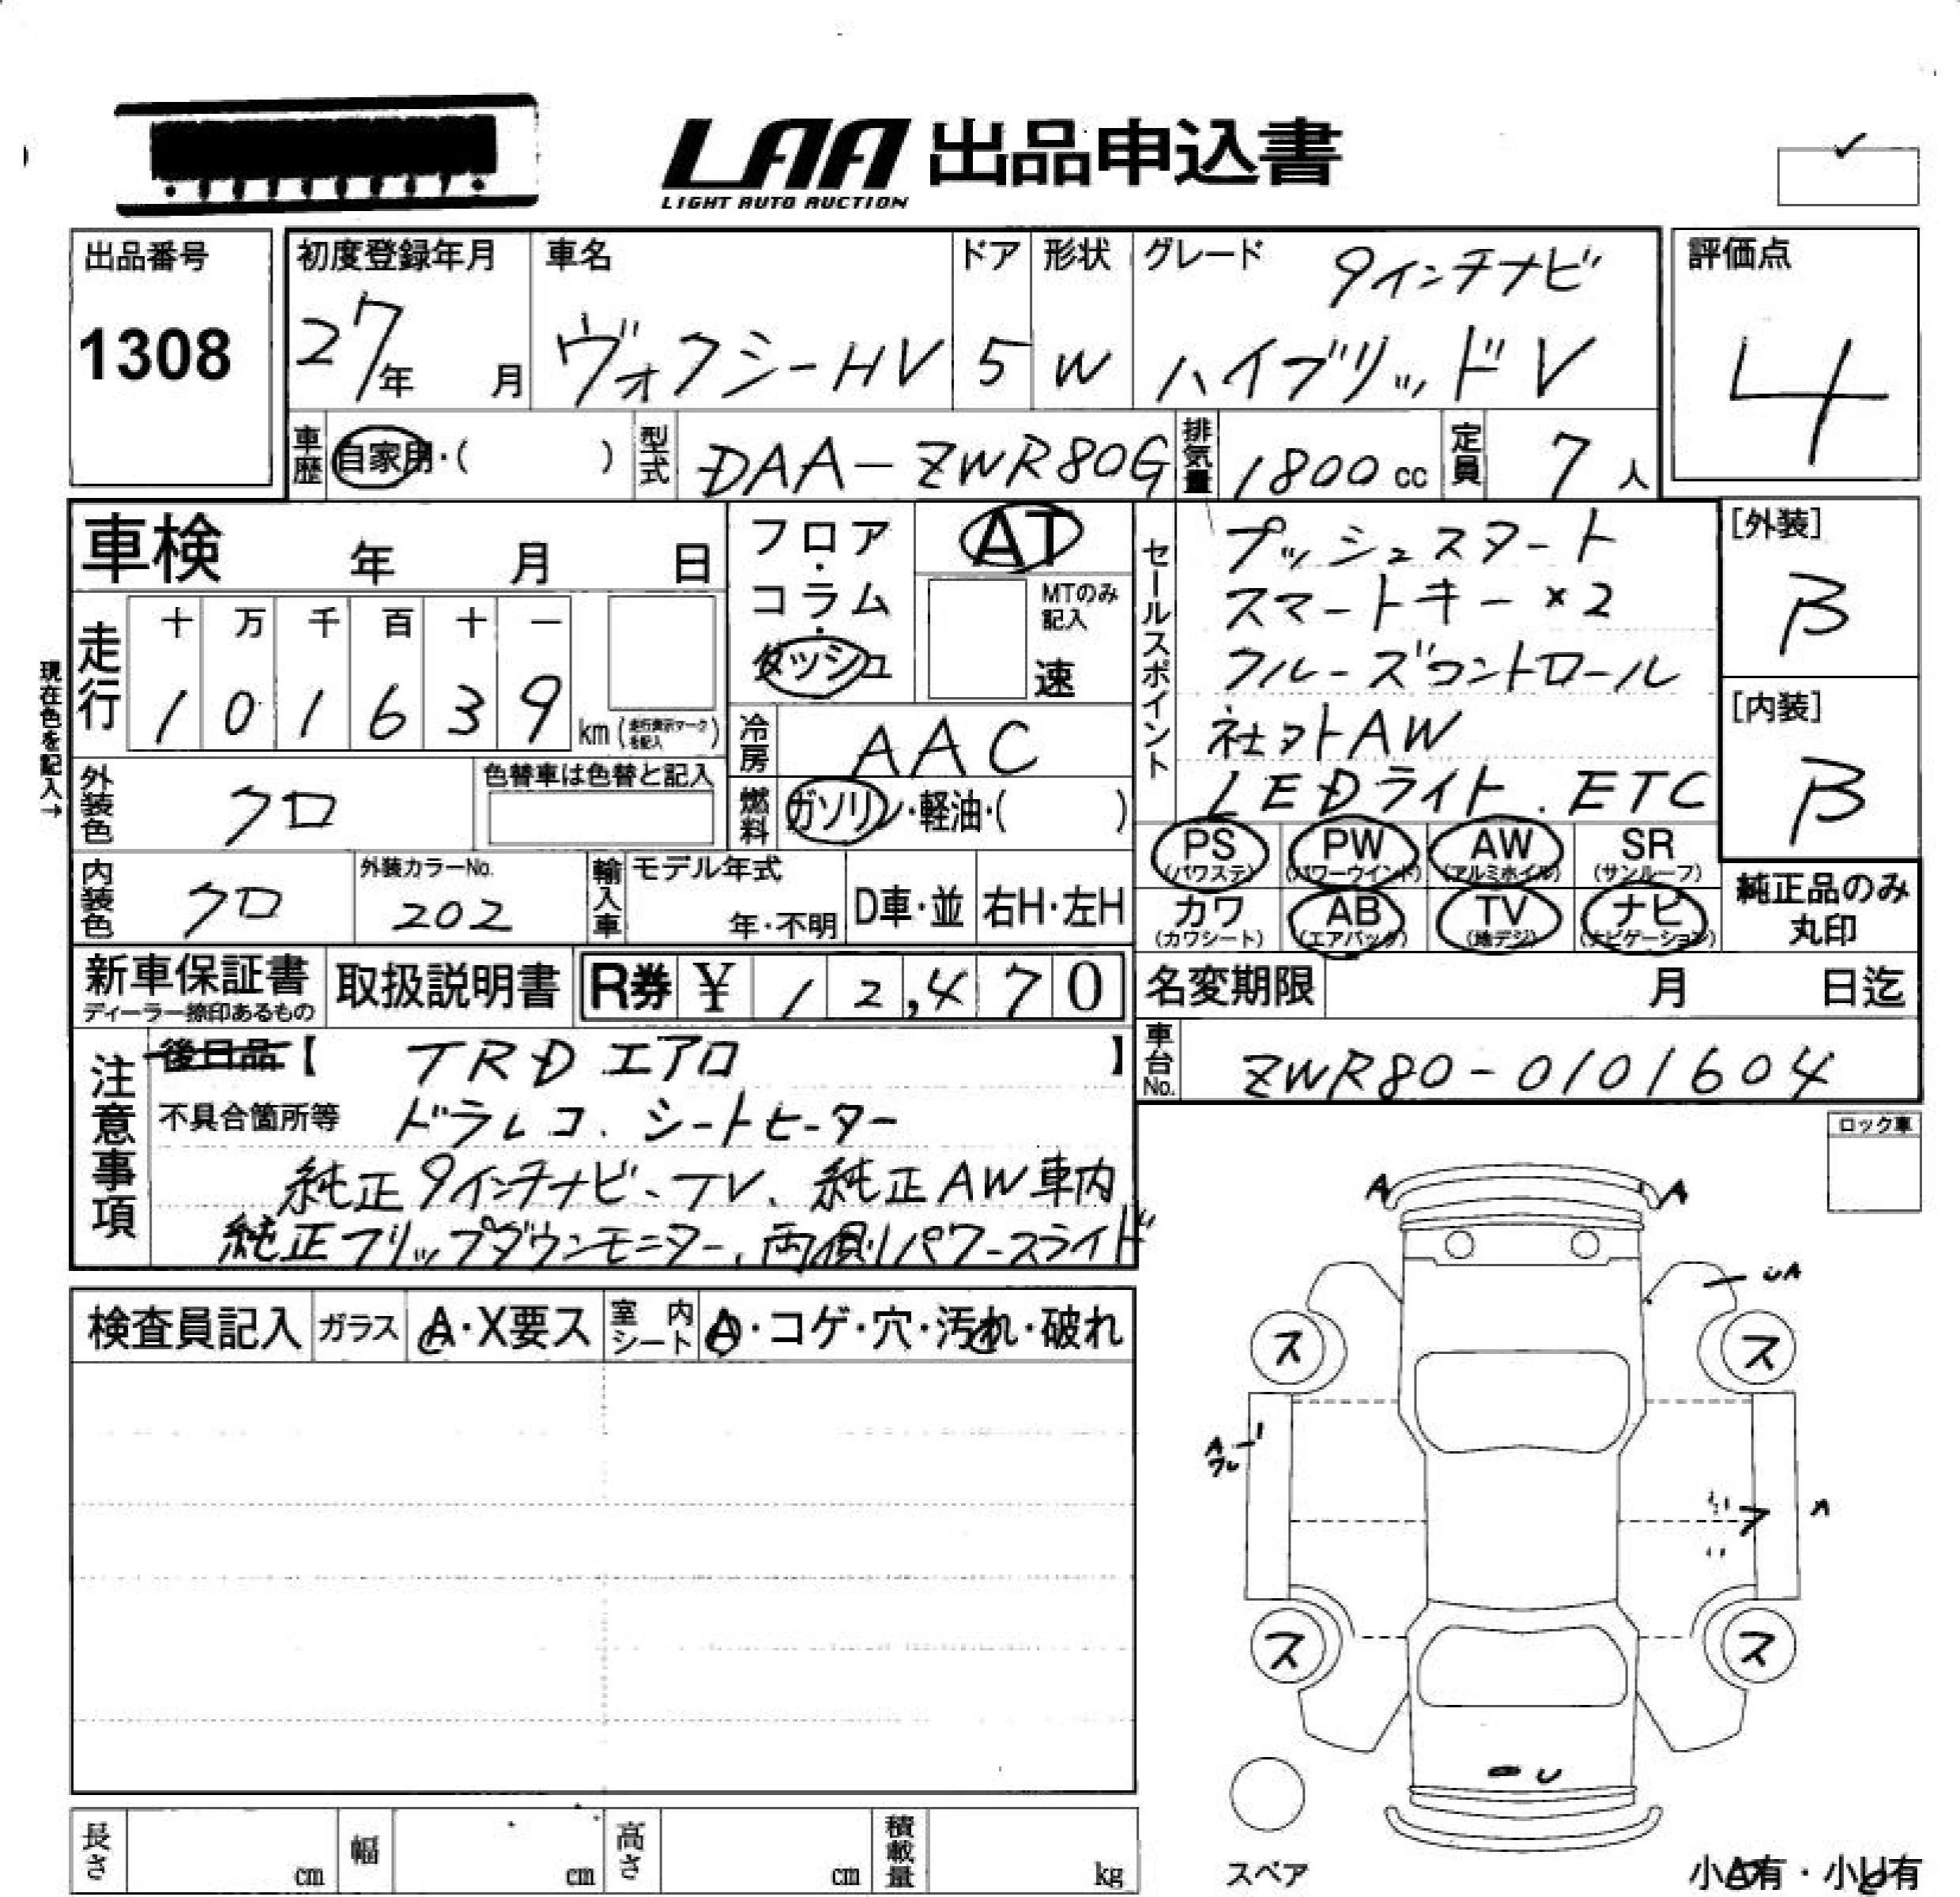 LAA 出品申込書
LIGHT AUTO AUCTION
出品番号
1308
初度登録年月
27年 月
車名
ヴォクシーHV
ドア
5
形状
W
グレード
9インチナビ
ハイブリッドV
評価点
4
車歴 自家用・( )
型式 DAA-ZWR80G
排気量 1800cc
定員 7人
車検 年 月 日
フロア・コラム・ダッシュ
AT
MTのみ記入
速
セールスポイント
プッシュスタート
スマートキー×2
クルーズコントロール
社外AW
LEDライト.ETC
[外装]
B
[内装]
B
現在色を記入→
走行
十 万 千 百 十 一
1 0 1 6 3 9 km(走行表示マークを記入)
冷房 AAC
外装色 クロ
色替車は色替と記入
燃料 ガソリン・軽油・( )
PS (パワステ) PW (パワーウインド) AW (アルミホイル) SR (サンルーフ)
カワ (カワシート) AB (エアバック) TV (地デジ) ナビ (ナビゲーション)
純正品のみ丸印
内装色 クロ
外装カラーNo.
202
輸入車 モデル年式
年・不明
D車・並 右H・左H
新車保証書
ディーラー捺印あるもの
取扱説明書
R券 ¥ 12,470
名変期限 月 日迄
車台No. ZWR80-0101604
注意事項
後日品【 TRDエアロ 】
不具合箇所等 ドラレコ、シートヒーター
純正9インチナビ、TV、純正AW車内
純正フリップダウンモニター、両側パワースライド
ロック車
A A
UA
ス ス
A
フ
A
ス ス
U
検査員記入 ガラス A・X要ス 室内シート A・コゲ・穴・汚れ・破れ
長さ cm 幅 cm 高さ cm 積載量 kg
スペア
小A有・小U有